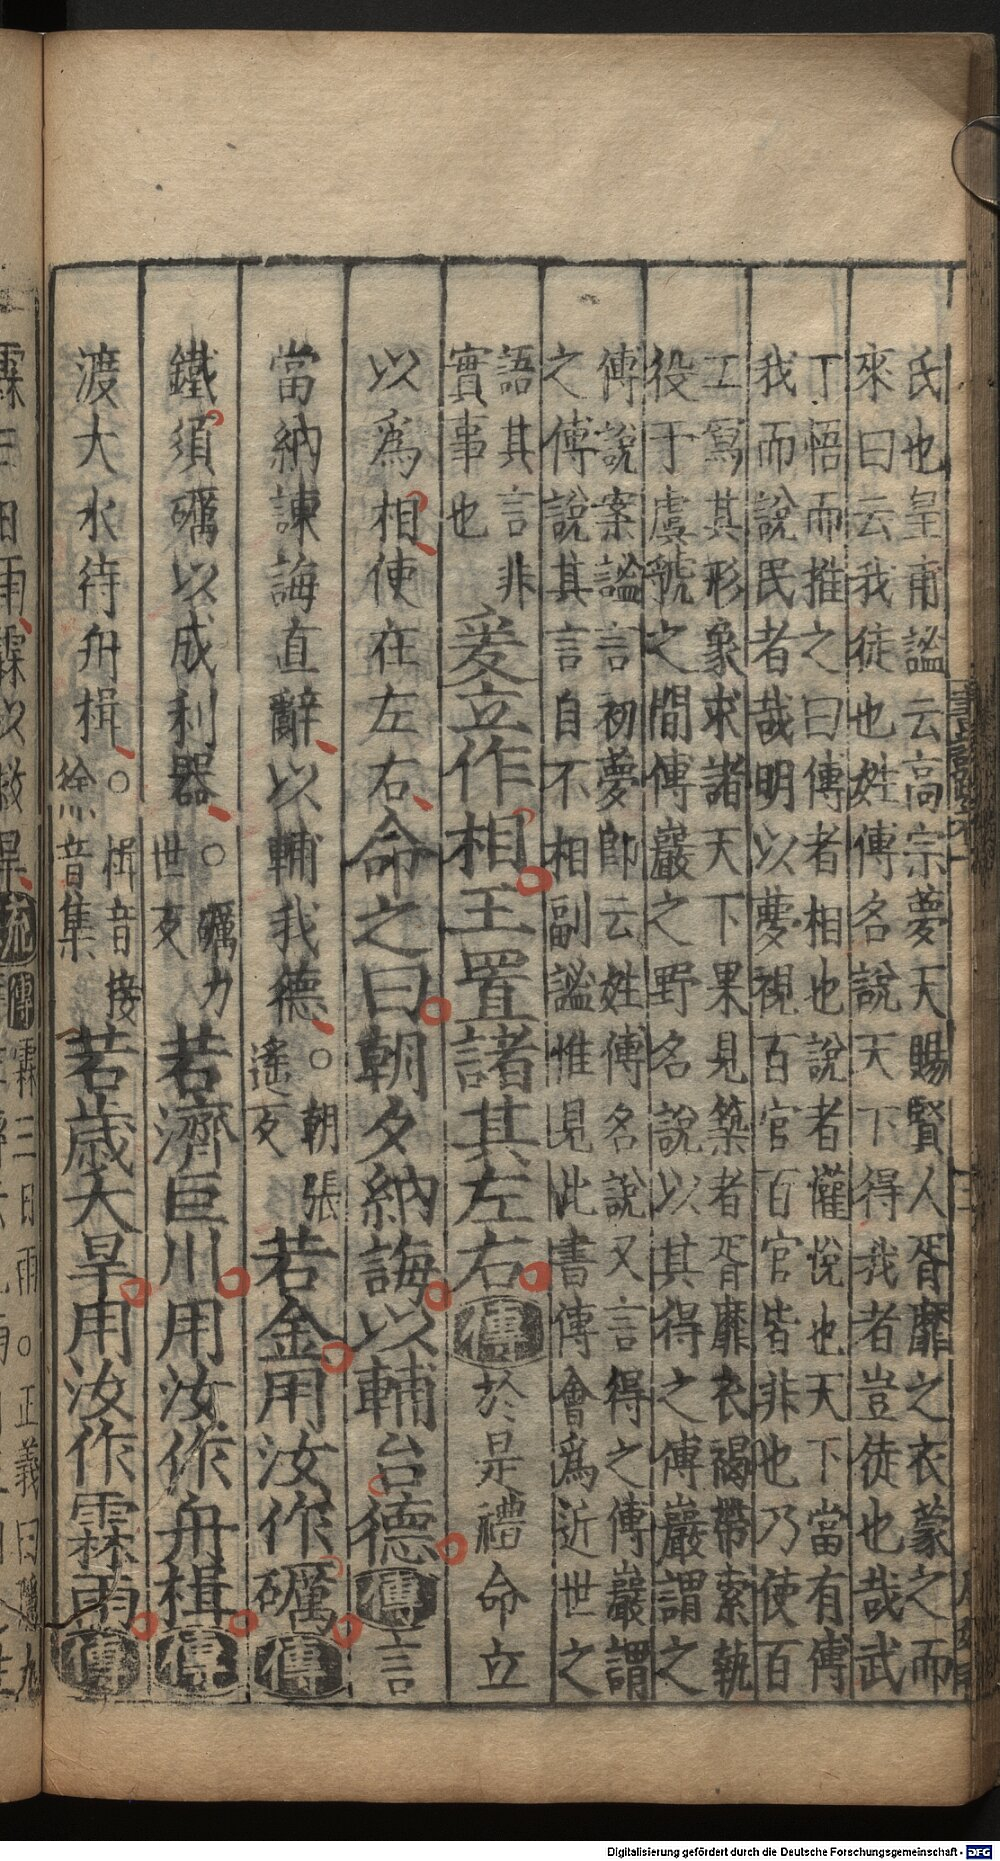 氏也皇甫謐云高宗夢天賜賢人胥靡之衣蒙之而
來曰云我徒也姓傅名說天下得我者豈徒也哉武
丁悟而推之曰傅者相也說者懽悅也天下當有傅
我而說民者哉明以夢視百官百官皆非也乃使百
工寫其形象求諸天下果見築者胥靡衣褐帶索執
役于虞虢之間傅巖之野名說以其得之傅巖謂之
傅說案謐言初夢卽云姓傅名說又言得之傅巖謂
之傅說其言自不相副謐惟見此書傳會爲近世之
語其言非
實事也
爰立作相王置諸其左右
傳
於是禮命立
以爲相使在左右
命之曰朝夕納誨以輔台德
傳
言
當納諫誨直辭以輔我德○
朝張
遙反
若金用汝作礪
傳
鐵須礪以成利器○
礪力
世反
若濟巨川用汝作舟楫
傳
渡大水待舟楫○
楫音接
徐音集
若歲大旱用汝作霖雨
傳
霖三日雨霖以救旱
疏
傳
霖三日雨○正義曰隱九
Digitalisierung gefördert durch die Deutsche Forschungsgemeinschaft - DFG